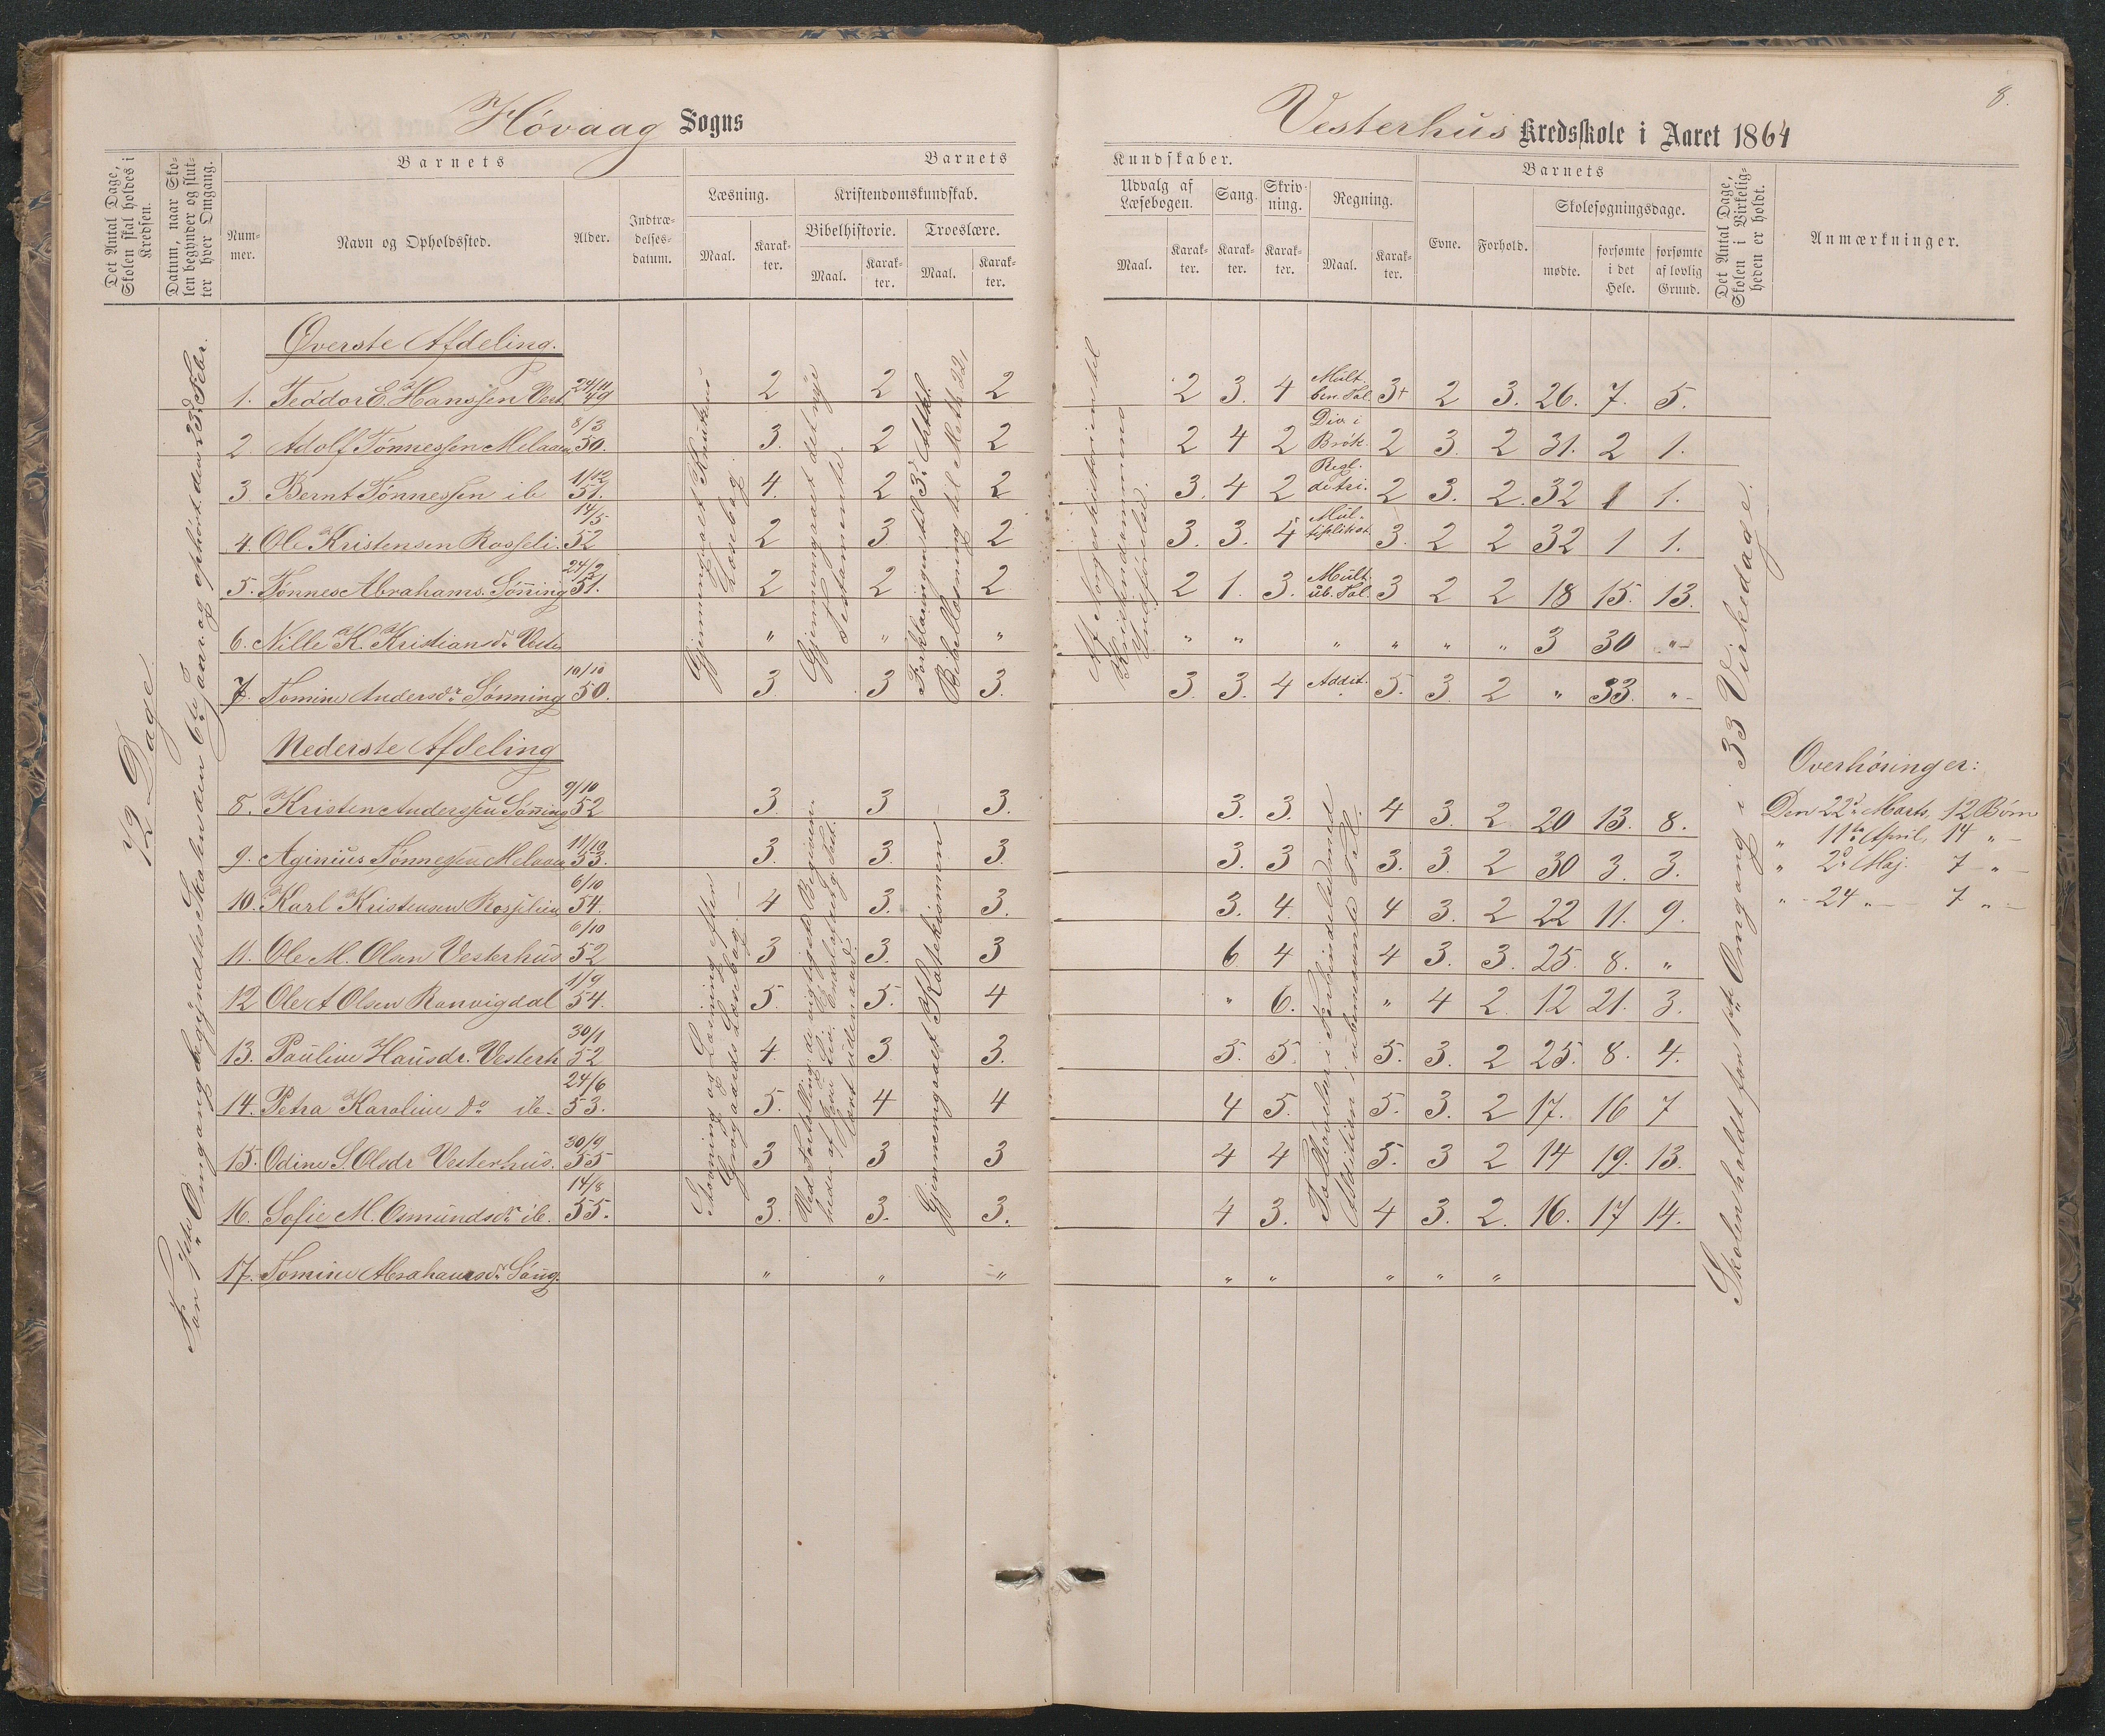 Høvaag Sogns
Vesterhus Kredsskole i Aaret 1864
8.
Det Antal Dage, Skolen skal holdes i Kredsen.
Datum, naar Skolen begynder og slutter hver Omgang.
Barnets
Nummer.
Navn og Opholdssted.
Alder.
Indtrædelsesdatum.
Barnets
Læsning.
Maal.
Karakter.
Kristendomskundskab.
Bibelhistorie.
Maal.
Karakter.
Troeslære.
Maal.
Karakter.
Kundskaber.
Udvalg af Læsebogen.
Maal.
Karakter.
Sang.
Karakter.
Skrivning.
Karakter.
Regning.
Maal.
Karakter.
Barnets
Evne.
Forhold.
Skolesøgningsdage.
mødte.
forsømte i det Hele.
forsømte af lovlig Grund.
Det Antal Dage, Skolen i Virkeligheden er holdt.
Anmærkninger.
72 Dage
Omgang begyndtes Skolen den 6te Jaar. og ophørt den 23d Febr.
Øverste Afdeling.
1. Teodor E. Hanssen Vest. 24/11 49 2 2 2 2 3. 4 Mult. ben. Tal. 3+ 2 3. 26. 7. 5.
2 Adolf Tønnessen Melaaen 8/3 50. 3. 2 2 2 4 2 Div i Brøk 2 3. 2 31. 2 1.
3. Bernt Tønnessen ib 1/12 51. 4. 2 2 3. 4 2 Regl. detri. 2 3. 2. 32 1 1.
4. Ole Kristensen Rosseli. 14/5 52 2 3. 2 3. 3. 4 Multiplikat. 3. 2 2 32 1 1.
5. Tønnes Abrahams. Sønning 24/2 51. 2 2 2 2 1. 3. Mult. ub. Tal. 3 2 2 18 15. 13.
6. Nille K. Kristiansdr Vester " " " " " " " " " 3 30 "
7. Tomine Andersdr Sønning 10/10 50. 3. 3 3. 3. 3. 4 Addit. 5. 3. 2 " 33. "
Gjennemgaaet Knudsens Læsebog.
Gjennemgaaet det nye Testamente
Forklaringen til 3. Artkl.
Bibellæsning til Meth. 22,
Af Norgeshistorien til Kristendommens Indførelse.
Nederste Afdeling
8. Kristen Anderssen Sønning 9/10 52 3. 3 3. 3. 3. 4 3. 2 20 13. 8.
9. Aginius Tønnessen Melaaen 11/10 53. 3. 3. 3. 3. 3 3. 3. 2 30 3. 3.
10. Karl Kristensen Rosselien 6/10 54. 4 3. 3. 3. 4. 4 3. 2 22 11. 9.
11. Ole M. Olsen Vesterhus 6/10 52 3 3. 3 6 4 4 3. 3. 25. 8. "
12 Ole A Olsen Ranvigdal 1/9 54. 5. 5. 4 " 6. " 4 2. 12 21. 3.
13. Pauline Hansdr. Vesterh. 30/1 52 4. 3. 3. 5. 5. 5. 3. 2 25. 8. 4.
14. Petra Karoline do ib. 24/6 53. 5. 4 4 4 5. 5. 3. 2 17. 16 7
15. Odine S. Olsdr Vesterhus. 30/9 55 3 3 3 4 4. 5. 3 2 14 19. 13.
16. Sofie M. Osmundsdr ib. 14/8 55. 3. 3. 3. 4 3. 4 3. 2. 16. 17 14.
17. Tomine Abrahamsdr Søng. " " " " " " " "
Stavning og Læsning efter Grøgaards Læsebog.
Gjennemgaaet Katekismen
Addition i ubenævnte Tal.
Skolen holdt for 1ste Omgang i 33 Virkedage.
Overhøringer:
Den 22d Marts, 12 Børn
" 11te April, 14 "
" 2d Maj. 7 "
" 24 " 7 "